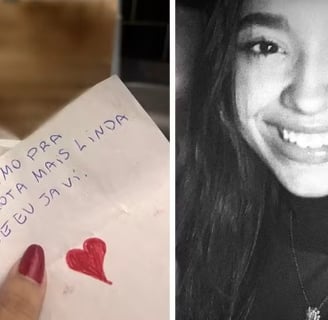 MO PRA
OTA MAIS LINDA
E EU JA VI: